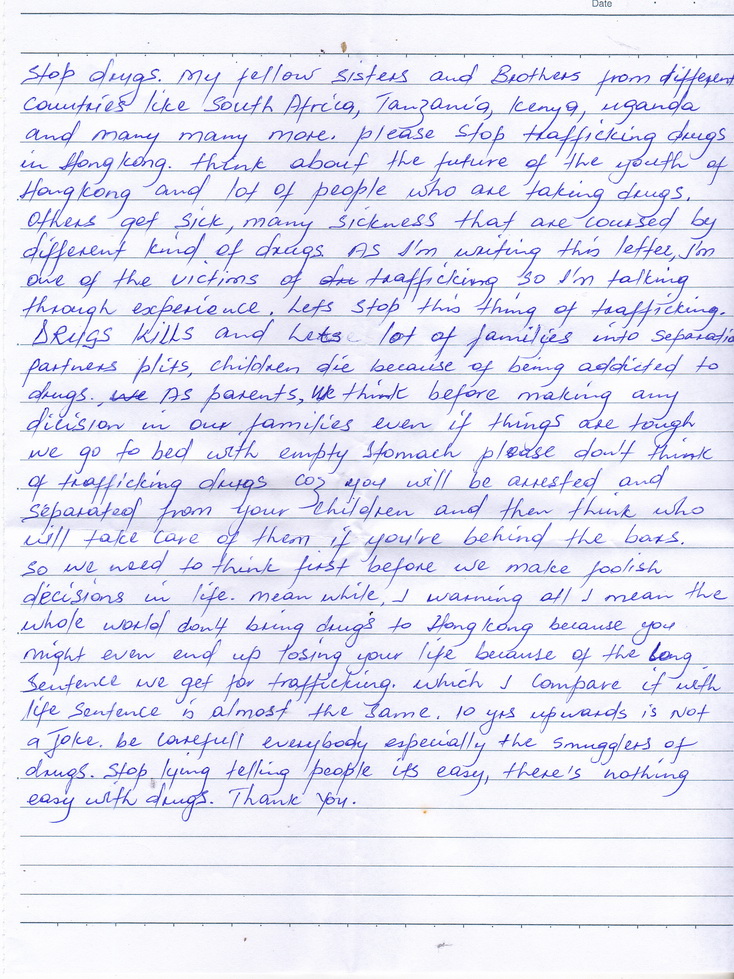 Date
Stop drugs. My fellow sisters and Brothers from different
countries like South Africa, Tanzania, Kenya, uganda
and many many more. please stop trafficking drugs
in Hongkong. think about the future of the youth of
Hongkong and lot of people who are taking drugs.
Others get sick, many sickness that are coursed by
different kind of drugs. As I'm writing this letter, I'm
one of the victims of trafficking so I'm talking
through experience. Lets stop this thing of trafficking.
DRUGS KILLS and Lets lot of families into separatio
partners plits, children die because of being addicted to
drugs. As parents, We think before making any
dicision in our families even if things are tough
we go to bed with empty stomach please don't think
of trafficking drugs coz you will be arrested and
separated from your children and then think who
will take care of them if you're behind the bars.
So we need to think first before we make foolish
decisions in life. mean while, I warning all I mean the
whole world don't bring drugs to Hongkong because you
might even end up losing your life because of the long
Sentence we get for trafficking. which I compare it with
life sentence is almost the same. 10 yrs upwards is not
a joke. be carefull everybody especially the smugglers of
drugs. Stop lying telling people its easy, there's nothing
easy with drugs. Thank You.